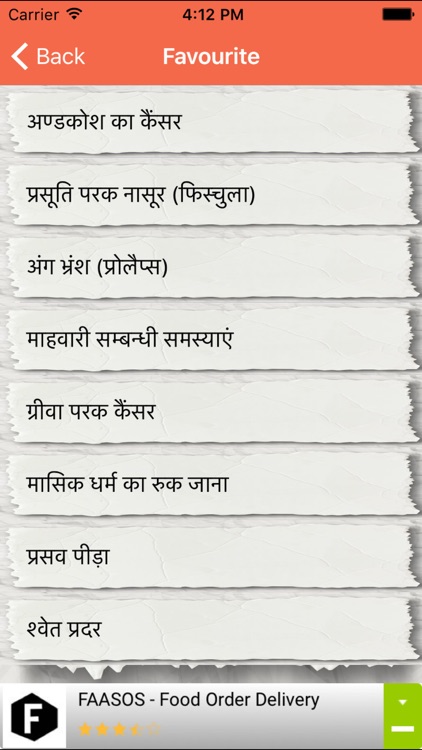 Carrier 4:12 PM
Back Favourite
अण्डकोश का कैंसर
प्रसूति परक नासूर (फिस्चुला)
अंग भ्रंश (प्रोलैप्स)
माहवारी सम्बन्धी समस्याएं
ग्रीवा परक कैंसर
मासिक धर्म का रुक जाना
प्रसव पीड़ा
श्वेत प्रदर
F
FAASOS - Food Order Delivery